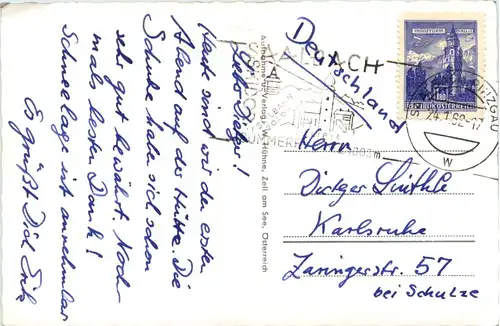 Lieber Dirtger!
Heute sind wir den ersten
Abend auf der Hütte. Die
Schuhe habe sich schon
sehr gut bewährt. Noch-
mals besten Dank!
Schneelage ist annehmbar
Es grüßt Dich Erik
Aufnahme u. Verlag W. Hühne, Zell am See, Österreich
SAALBACH
SOMMER
Deutschland
REPUBLIK ÖSTERREICH
24.1.62-17
W
Herrn
Dirtger
Karlsruhe
Zaringerstr. 57
bei Schulze